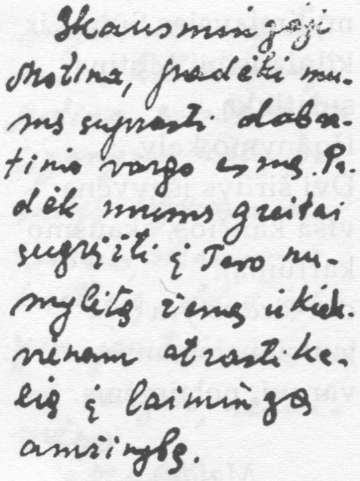 Skausmingoji
Motina, padėki mu-
ms suprasti dabar-
tinio vargo esmę. Pa-
dėk mums greitai
sugrįžti į Tavo nu-
mylėtą žemę ir kiek-
vienam atrasti ke-
lią į laimingą
amžinybę.